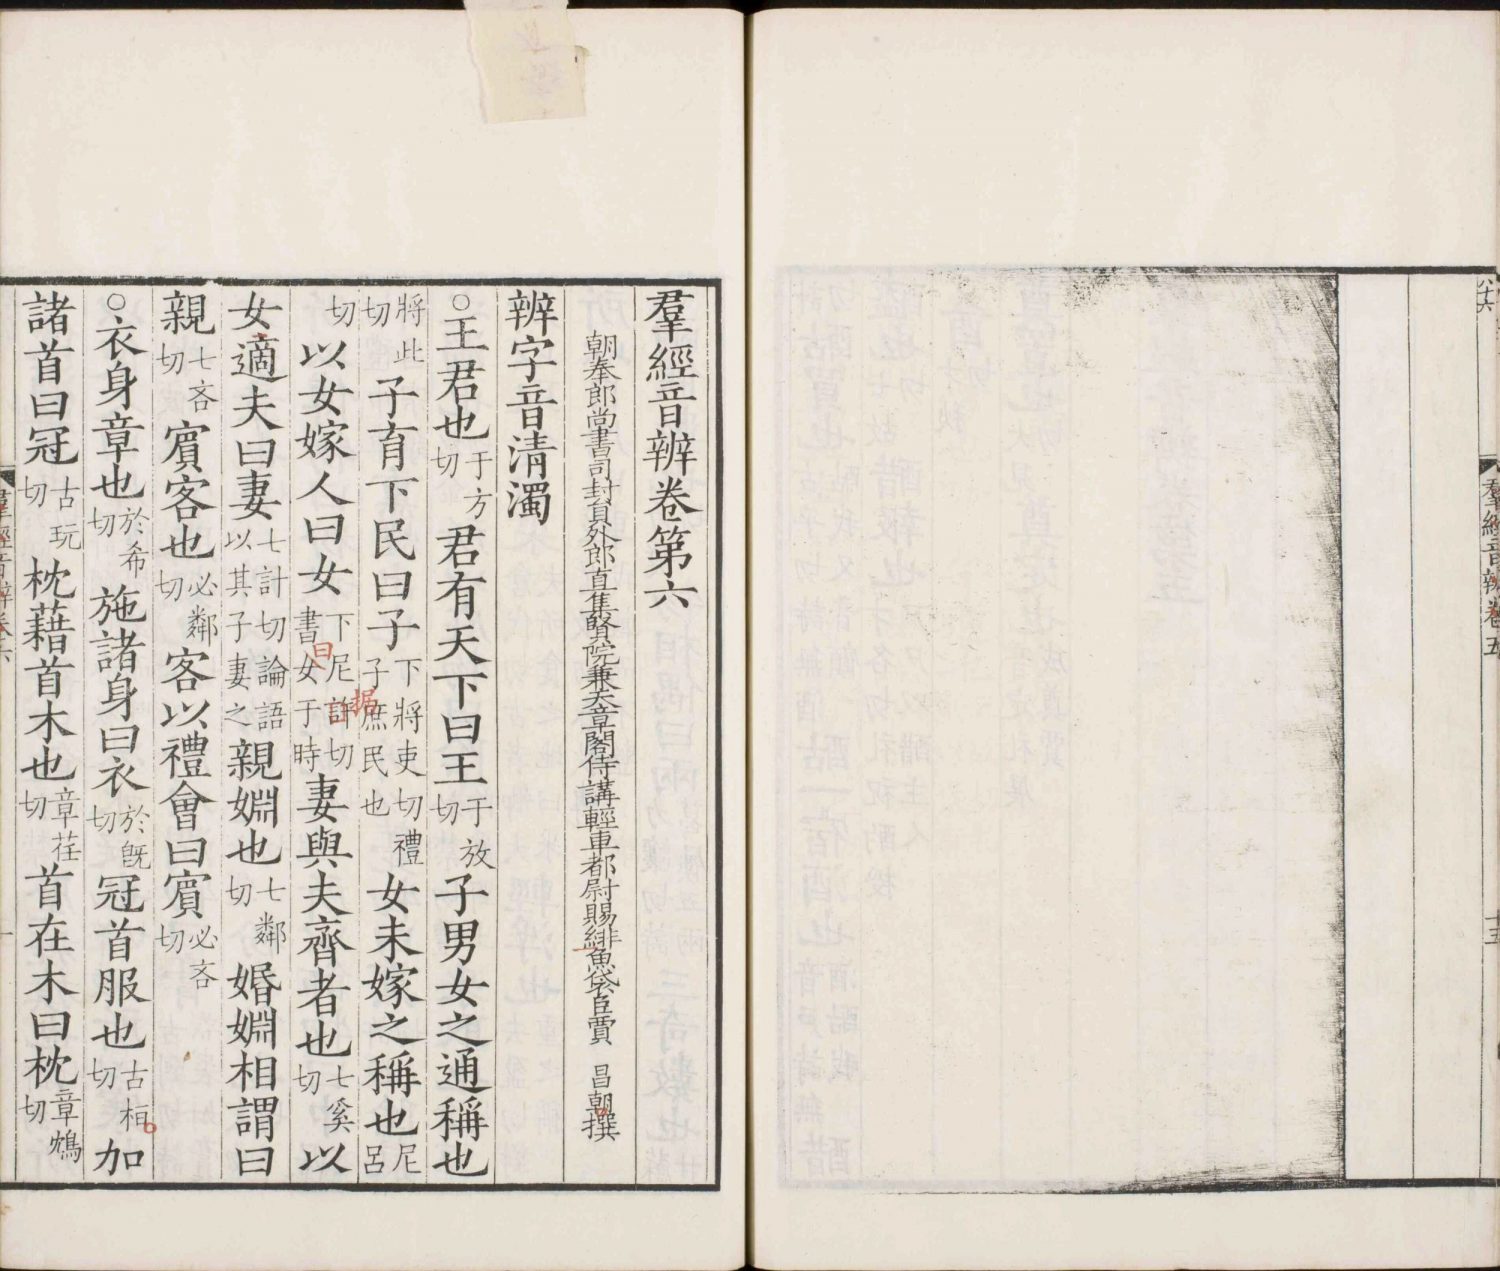 羣經音辨卷五
十五
羣經音辨卷第六
朝奉郎尚書司封員外郎直集賢院兼天章閣侍講輕車都尉賜緋魚袋臣賈 昌朝撰
辨字音清濁
○王君也于方切君有天下曰王于放切子男女之通稱也
將此切子育下民曰子下將吏切禮子庶民也女未嫁之稱也尼呂
切以女嫁人曰女下尼詐切書女于時妻與夫齊者也七奚切以
女適夫曰妻七計切論語以其子妻之親婣也七鄰切婚婣相謂曰
親七吝切賓客也必鄰切客以禮會曰賓必吝切
○衣身章也於希切施諸身曰衣於旣切冠首服也古桓切加
諸首曰冠古玩切枕藉首木也章荏切首在木曰枕章鴆切
曰
据